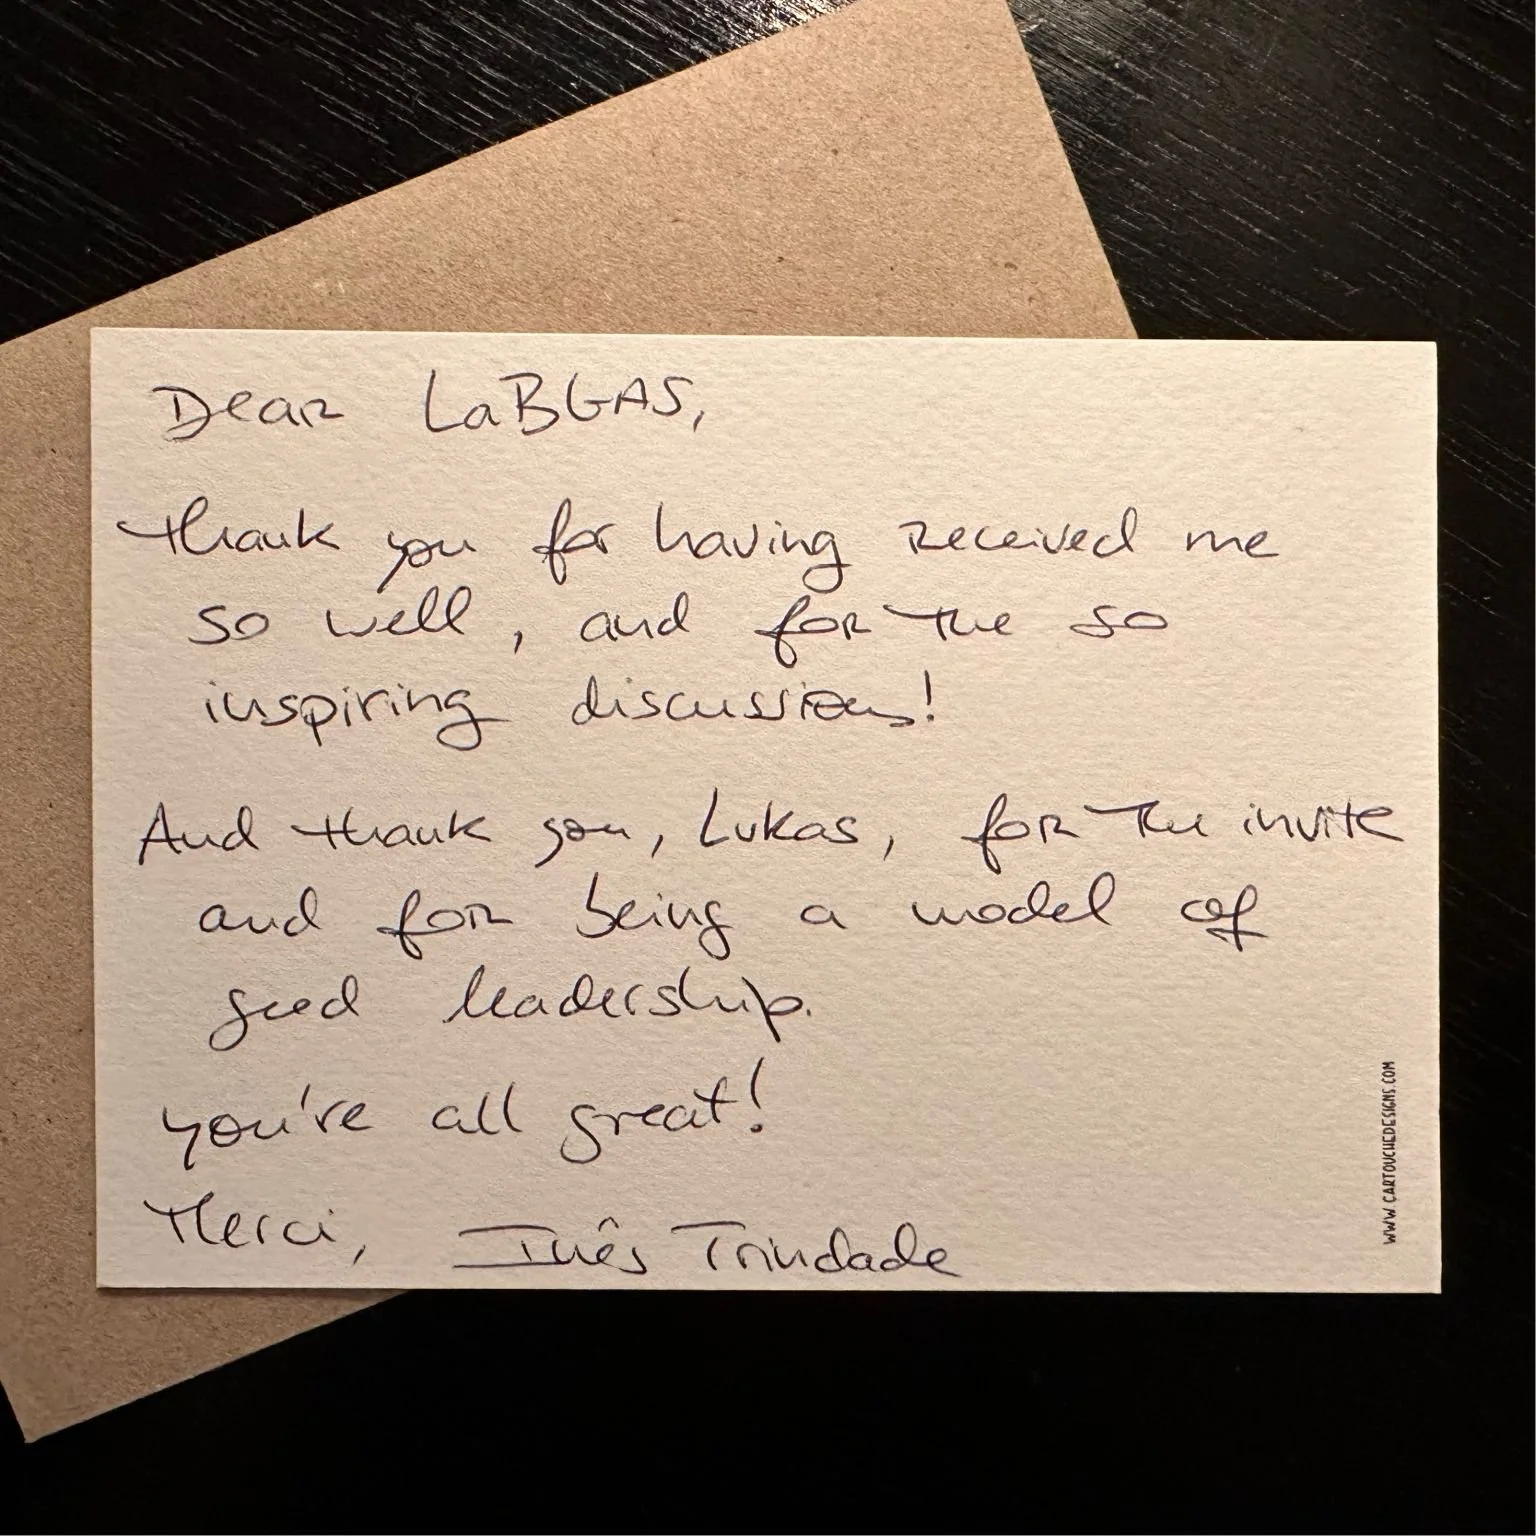 Dear LaBGAS,
Thank you for having received me
so well, and for the so
inspiring discussions!
And thank you, Lukas, for the invite
and for being a model of
good leadership.
You're all great!
Merci, Inês Trindade
WWW.CARTOUCHEDESIGNS.COM